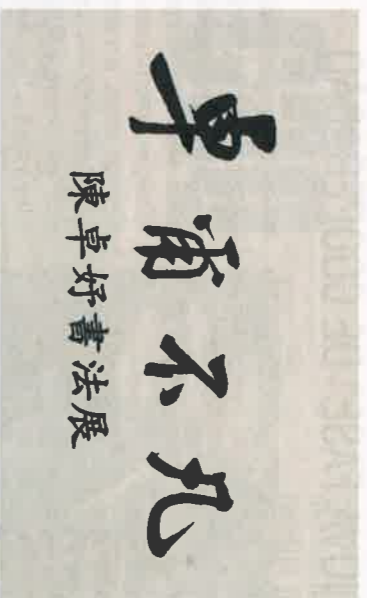 卓爾不凡
陳卓好書法展